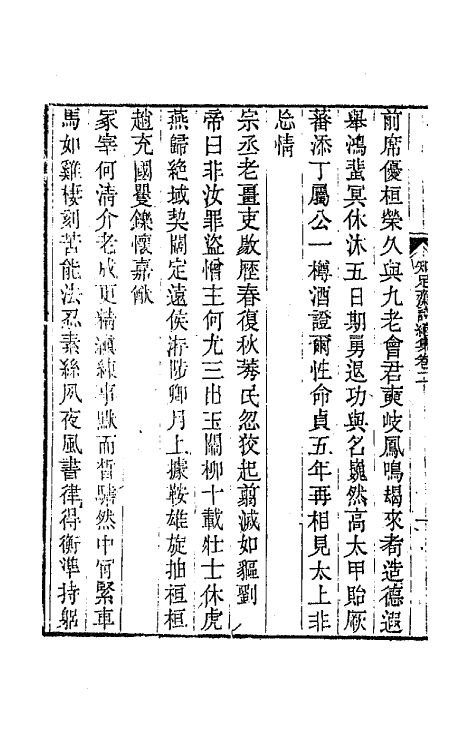 前席優桓榮久與九老會君奭岐鳳鳴朅來耇造德遐
舉鴻蜚冥休沐五日期勇退功與名巍然高太甲貽厥
蕃添丁屬公一樽酒證爾性命貞五年再相見太上非
忘情
宗丞老畺吏敭歷春復秋莠民忽狡起翦滅如驅劉
帝曰非汝罪盜憎主何尤三出玉關柳十載壯士休虎
燕歸絕域契闊定遠侯洊陟卿月上據鞍雄旋抽桓桓
趙充國矍鑠懷嘉猷
冢宰何清介老成更精練事默而晳驕然中肯緊車
馬如雞棲刻苦能法忍素絲夙夜風書律得衡準持躬
知足齋詩續集卷二